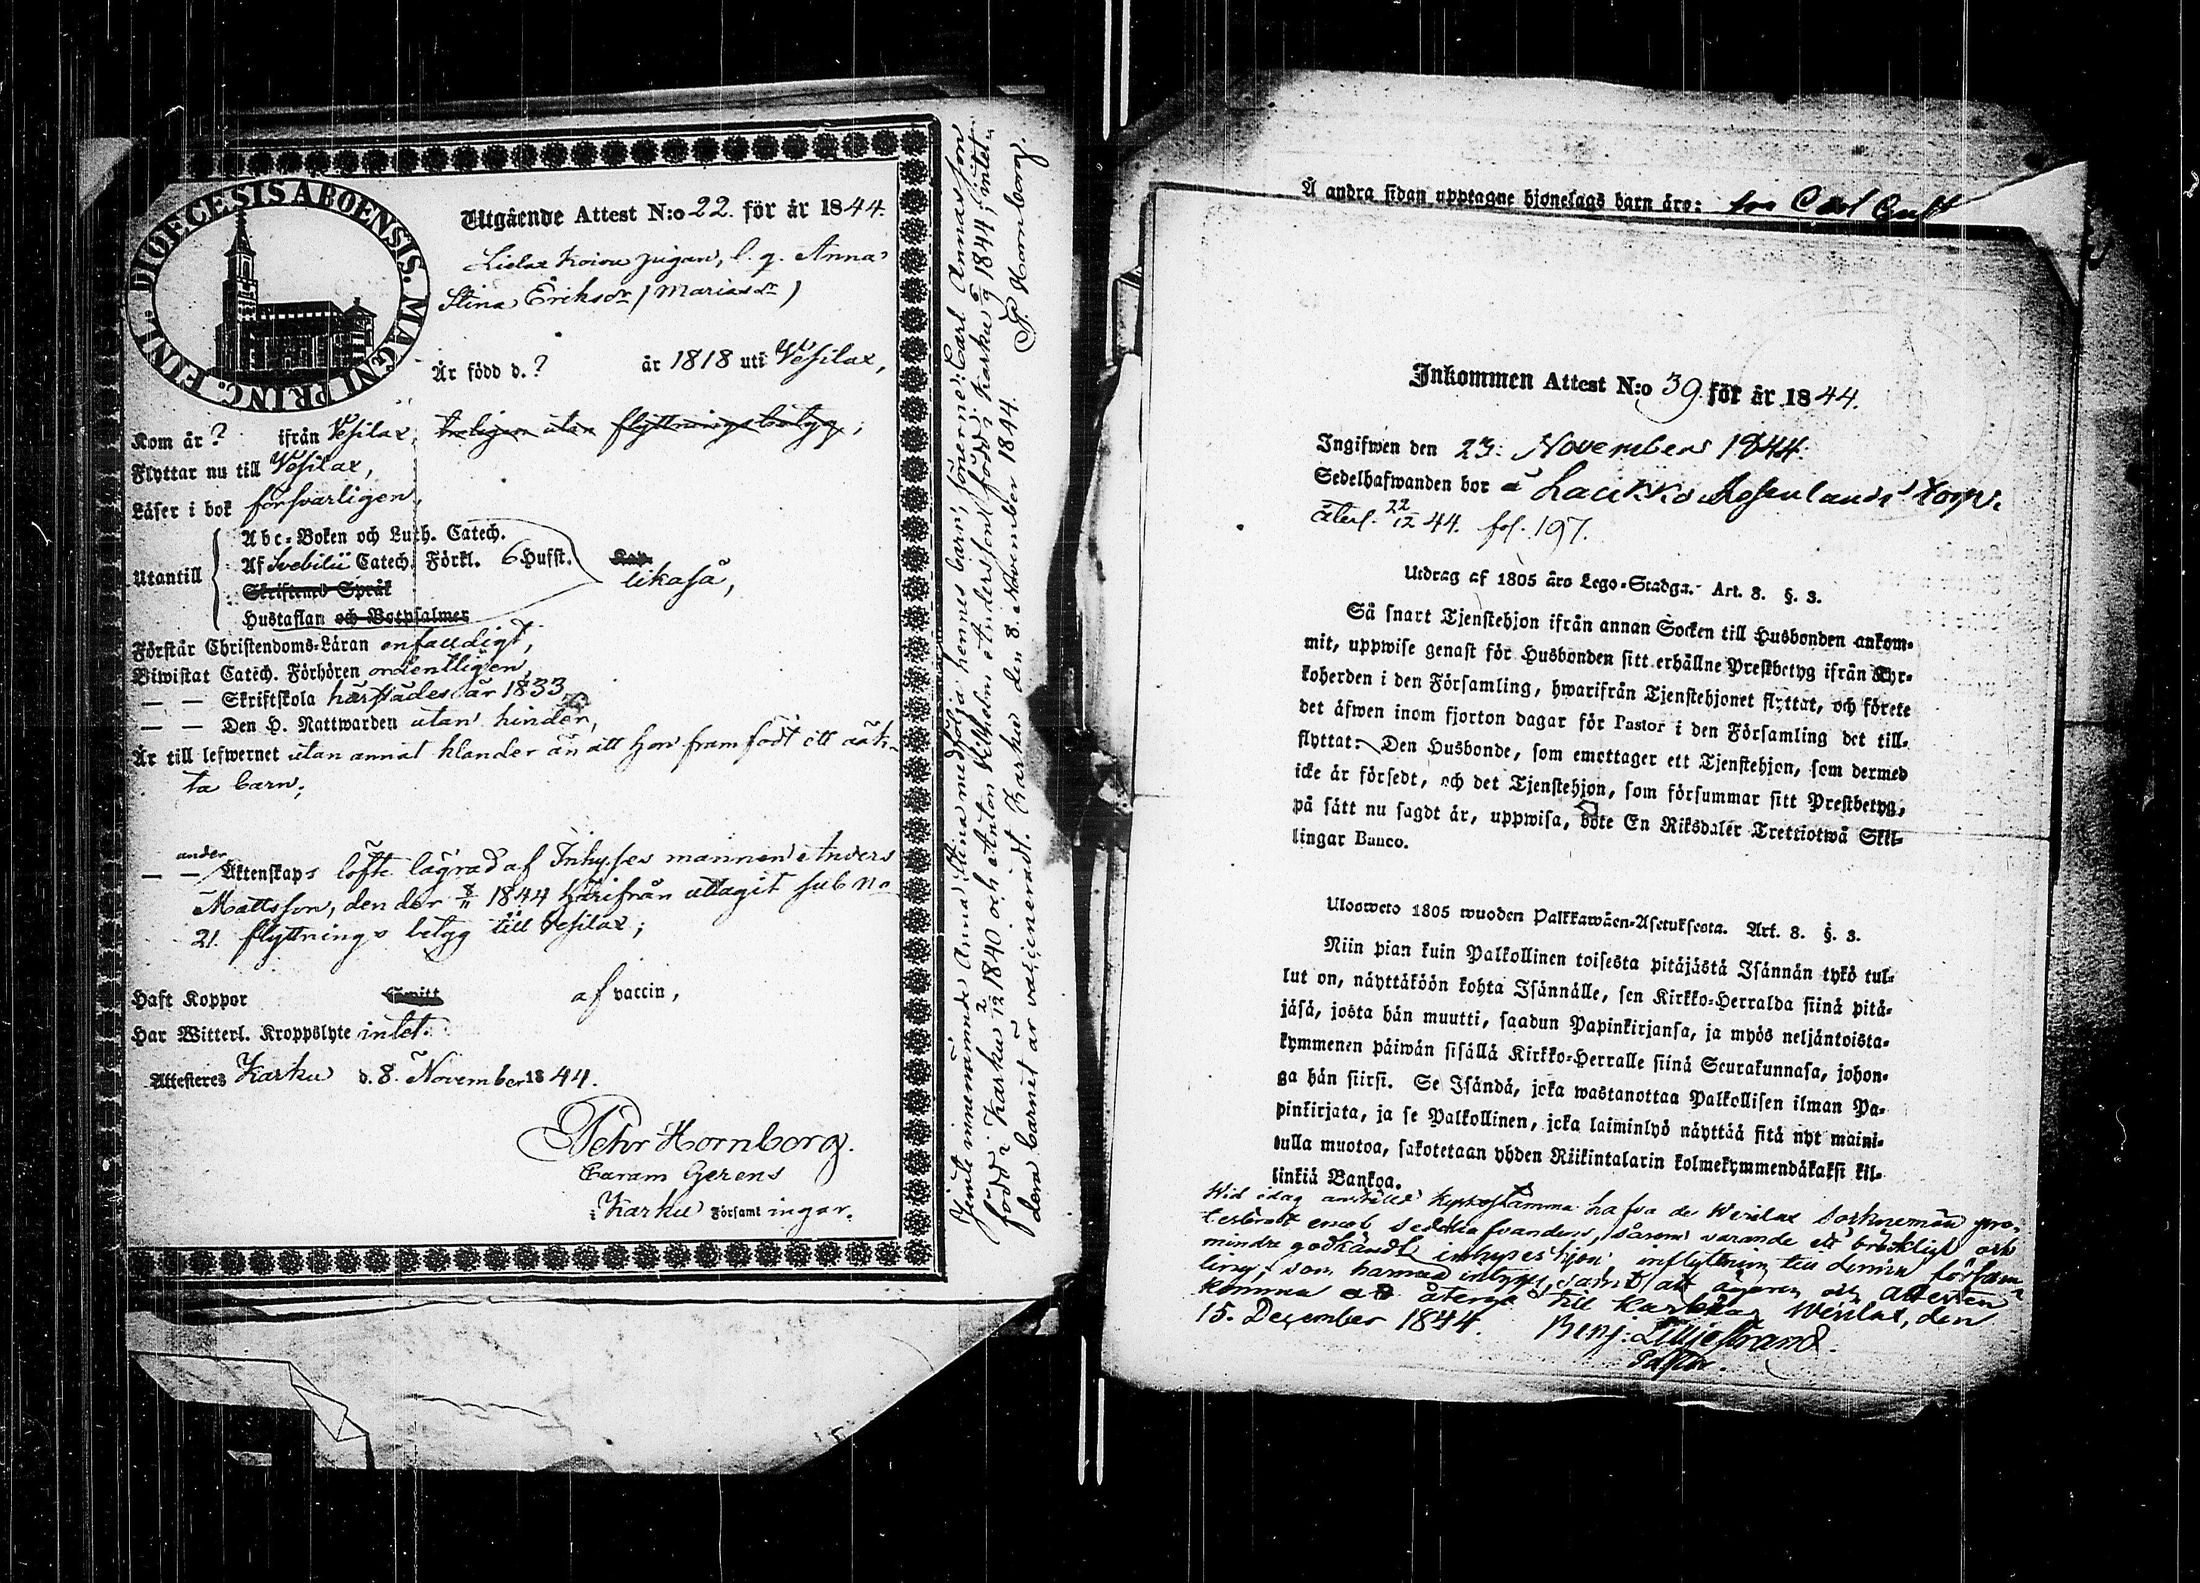 DIOECESIS ABOENSIS. MAGNI PRINC. FINL.
Utgående Attest N:o 22. för år 1844.
pigan, l. g. Anna
Stina Eriksdr / Mariasdr /
Är född d. ? år 1818 uti Vesilax,
Kom år ? ifrån Vesilax, troligen utan flyttningsbetyg;
Flyttar nu till Vesilax,
Läser i bok försvarligen,
Utantill
Abc-Boken och Luth. Catech.
Af Svebilii Catech. Förkl. 6 Hufst. Kap.
Skriftenes Språk likaså,
Hustaflan och Botpsalmer
Förstår Christendoms-Läran enfaldigt,
Biwistat Catech. Förhören ordentligen,
— — Skriftskola härstädes år 1833,
— — Den H. Nattwarden utan hinder,
Är till lefwernet utan annat klander än att hon framfödt ett oäk-
ta barn;
— — under Äktenskaps löfte lägrad af Inhyses mannen Anders
Mattsson, den der 8/11 1844 härifrån uttagit sub No
21. flyttnings betyg till Vesilax;
Haft Koppor af vaccin,
Har Witterl. Kroppslyte intet.
Attesteres Karku d. 8. November 1844.
Pehr Hornborg.
Curam Gerens
i Karku Församlingar.
Jemte innenämnde Anna Stina medfölja hennes barn, sönerne: Carl Annasson
född i Karku 2/12 1840 och Anton Vilhelm Andersson född i Karku 6/9 1844; intet-
dera barnet är vaccineradt. Karku den 8. November 1844. P. Hornborg.
Å andra sidan upptagne hjonelags barn äro: Carl Gust
Inkommen Attest N:o 39. för år 1844.
Ingifwen den 23. November 1844.
Sedelhafwanden bor å Laukko torp.
återl. 22/12 44. fol. 197.
Utdrag af 1805 års Lego-Stadga. Art. 8. §. 3.
Så snart Tjenstehjon ifrån annan Socken till Husbonden ankom-
mit, uppwise genast för Husbonden sitt erhållne Prestbetyg ifrån Kyr-
koherden i den Församling, hwarifrån Tjenstehjonet flyttat, och förete
det äfwen inom fjorton dagar för Pastor i den Församling det till-
flyttat: Den Husbonde, som emottager ett Tjenstehjon, som dermed
icke är försedt, och det Tjenstehjon, som försummar sitt Prestbetyg,
på sätt nu sagdt är, uppwisa, böte En Riksdaler Trettiotwå Skil-
lingar Banco.
Ulosweto 1805 wuoden Palkkawäen-Asetuksesta. Art. 8. §. 3.
Niin pian kuin Palkollinen toisesta pitäjästä Isännän tykö tul-
lut on, näyttäköön kohta Isännälle, sen Kirkko-Herralda siinä pitä-
jäsä, josta hän muutti, saadun Papinkirjansa, ja myös neljäntoista-
kymmenen päiwän sisällä Kirkko-Herralle siinä Seurakunnasa, johon-
ga hän siirsi. Se Isändä, joka wastanottaa Palkollisen ilman Pa-
pinkirjata, ja se Palkollinen, joka laiminlyö näyttää sitä nyt maini-
tulla muotoa, sakotetaan yhden Riikintalarin kolmekymmendäkaksi kil-
linkiä Bankoa.
Wid idag anställd Kyrkostämma hafva de Wesilax Socknemän pro-
testerat emot sedelhafvandens, såsom varande ett bräckligt och
mindre godkändt inhyses hjon inflyttning till denna försam-
ling; som härmed intygas, samt att ägaren och attesten
komma att återgå till Karku. Wesilax, den
15. December 1844. Benj: Lilljestrand.
Pastor.